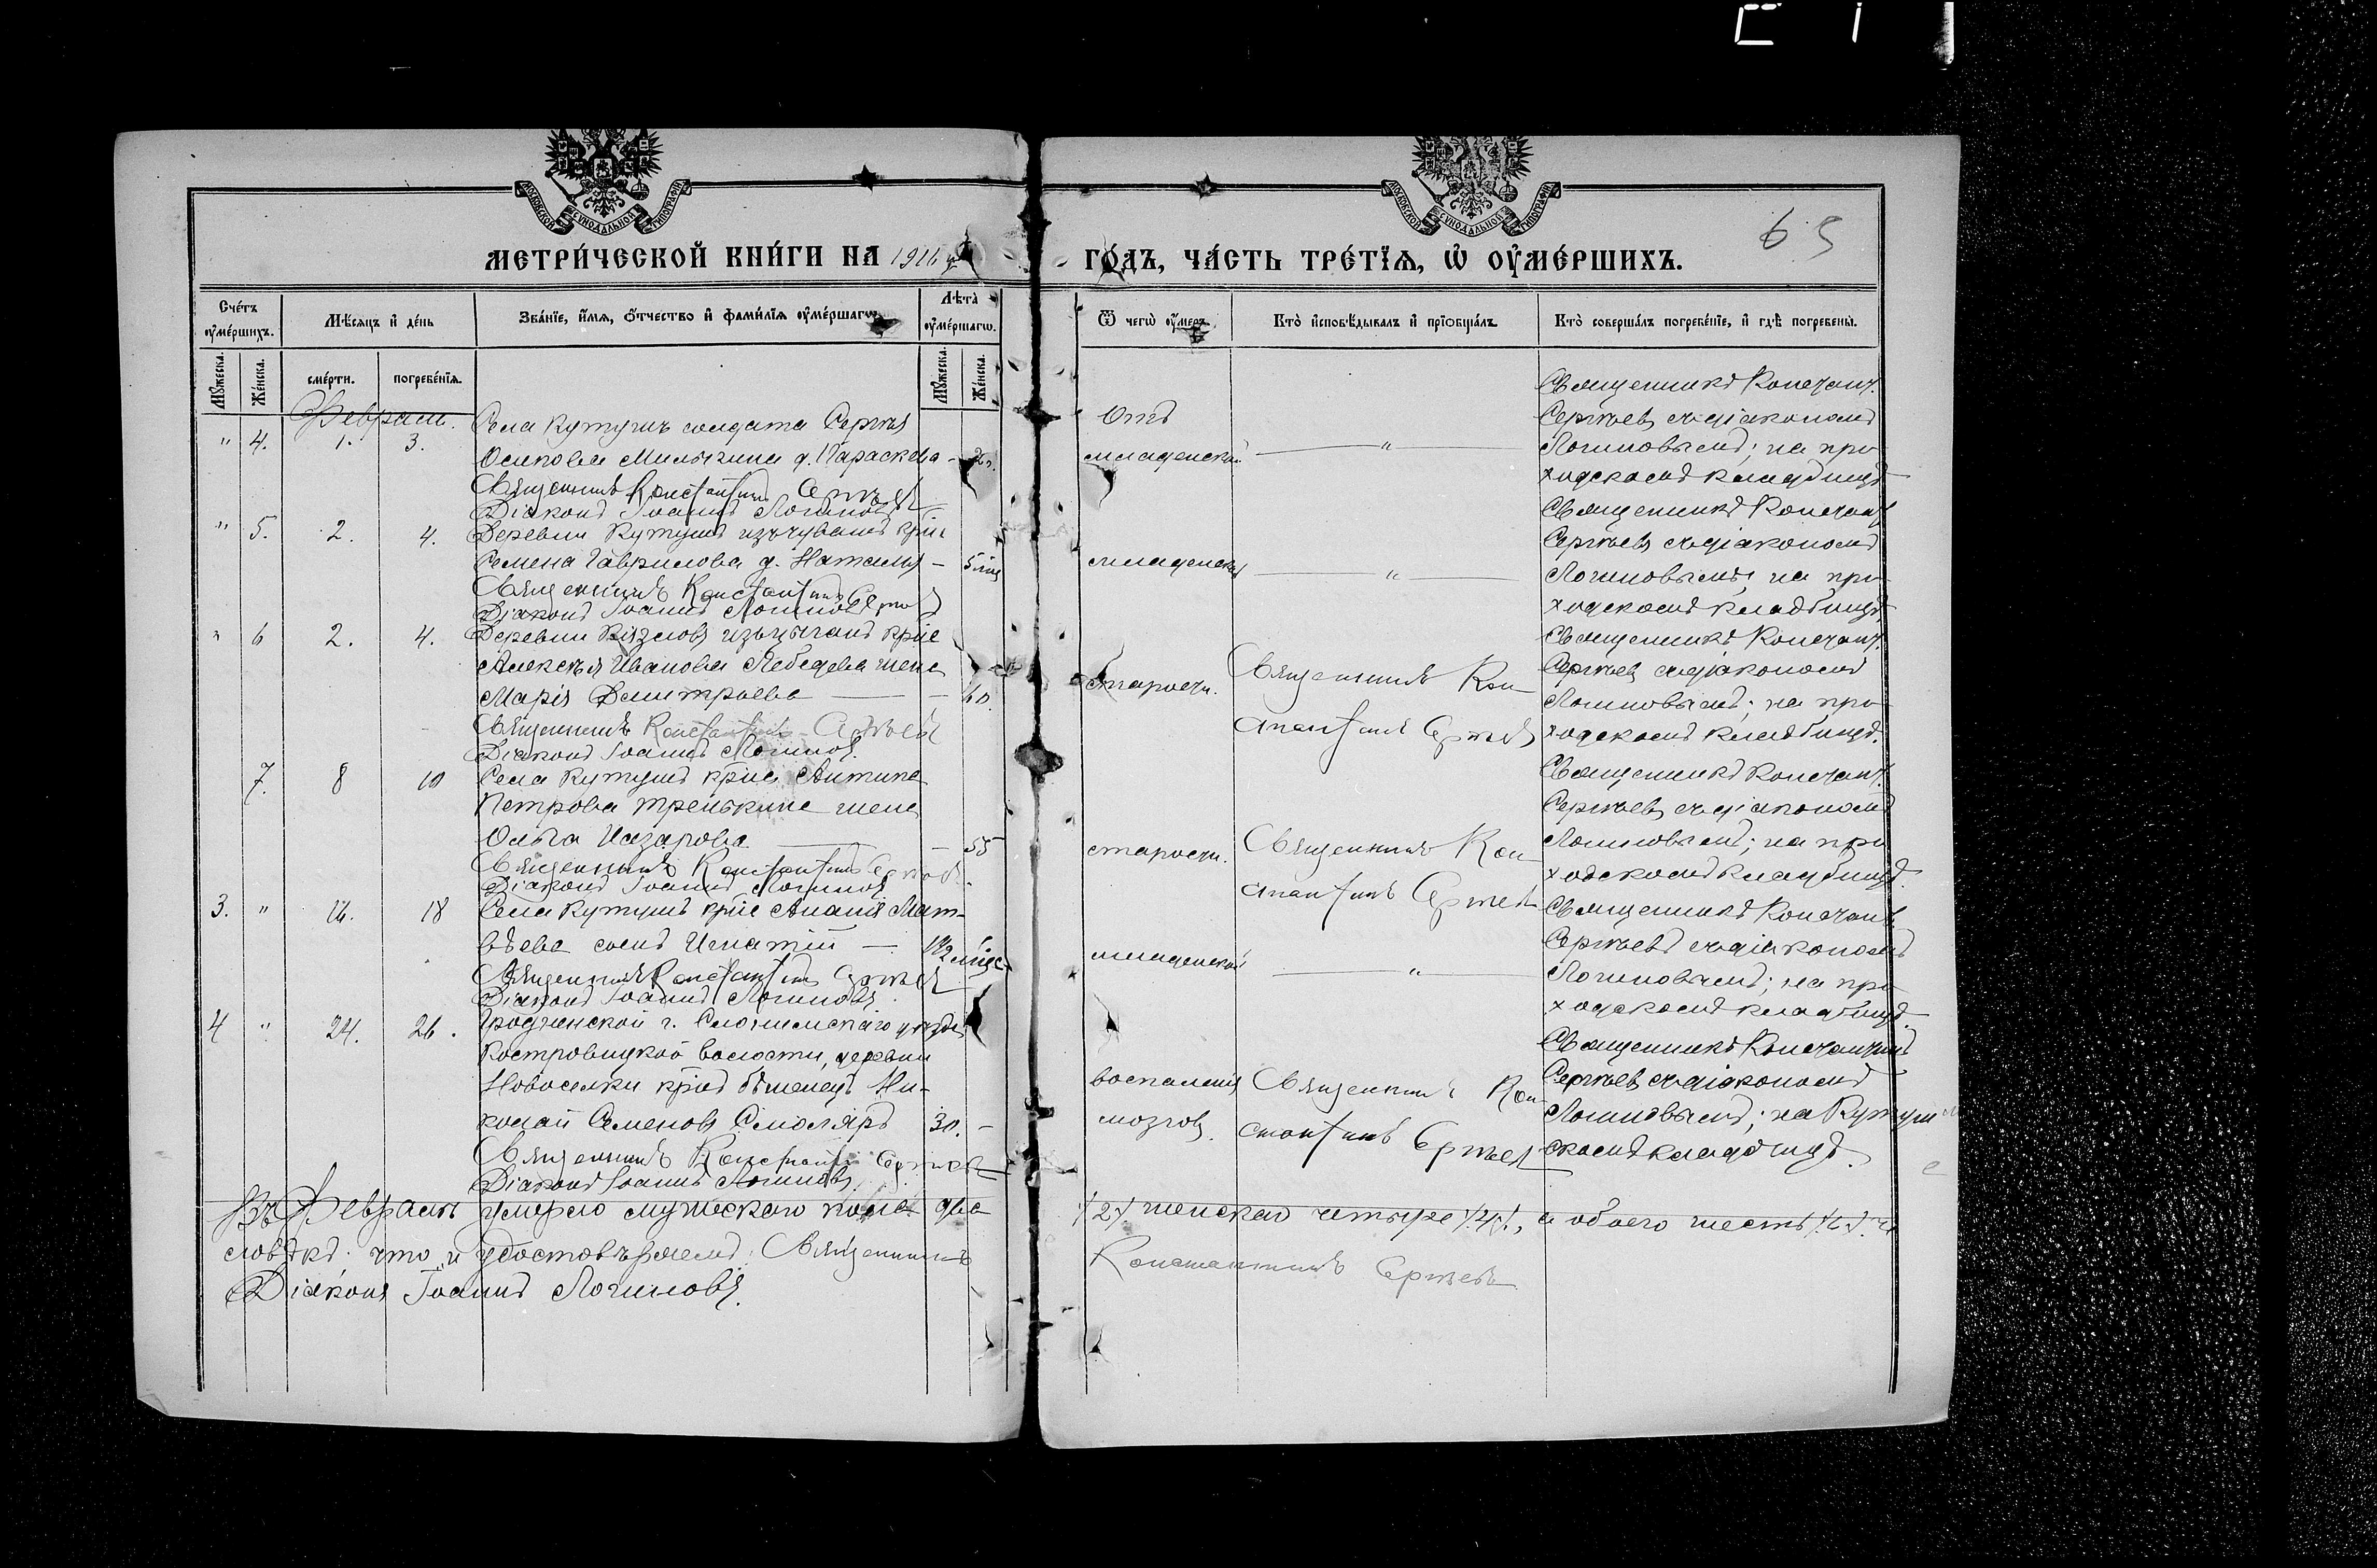 МОСКОВСКОЙ СУНОДАЛЬНОЙ ТИПОГРАФІИ
МОСКОВСКОЙ СУНОДАЛЬНОЙ ТИПОГРАФІИ
65
МЕТРИ́ЧЕСКОЙ КНИ́ГИ НА 1916
ГО́ДЪ, ЧА́СТЬ ТРЕ́ТЇѦ, Ѡ҆ ОУ҆МЕ́РШИХЪ.
Сче́тъ оу҆ме́ршихъ.
Мѣ́сѧцъ и҆ де́нь
Зва́нїе, и҆́мѧ, ѻ҆́тчество и҆ фами́лїѧ оу҆ме́ршагѡ.
Лѣта̀ оу҆ме́ршагѡ.
Ѿ чегѡ̀ оу҆́меръ.
Кто̀ и҆сповѣ́дывалъ и҆ прїѡбща́лъ.
Кто̀ соверша́лъ погребе́нїе, и҆ гдѣ̀ погребены̀.
Мꙋ́жеска.
Же́нска.
сме́рти.
погребе́нїѧ.
Мꙋ́жеска.
Же́нска.
Февраль.
" 4. 1. 3. Села Кутушъ солдата Сергѣя
Осипова Милыкина д. Параскева - 2 г.
Священникъ Константинъ Сергѣевъ
Діаконъ Іоаннъ Логиновъ
Отъ
младенской
— " —
Священникъ Констант.
Сергѣевъ съ діакономъ
Логиновымъ; на при-
ходскомъ кладбищѣ
" 5. 2. 4. Деревни Кутушъ изъ чувашъ кр-на
Семена Гаврилова д. Наталія - 5 мѣс
Священникъ Константинъ Сергѣевъ
Діаконъ Іоаннъ Логиновъ
младенской
— " —
Священникъ Констант
Сергѣевъ съ діакономъ
Логиновымъ; на при-
ходскомъ кладбищѣ.
" 6 2. 4. Деревни Вязловъ изъ цыганъ кр-на
Алексѣя Иванова Лебедева жена
Марія Дмитріева — - 60.
Священникъ Константинъ Сергѣевъ
Діаконъ Іоаннъ Логиновъ.
старости.
Священникъ Кон-
стантинъ Сергѣевъ
Священникъ Констант.
Сергѣевъ съ діакономъ
Логиновымъ; на при-
ходскомъ кладбищѣ.
7. 8 10 Села Кутушъ кр-на Антипа
Петрова Тренькина жена
Ольга Назарова — - 55
Священникъ Константинъ Сергѣевъ.
Діаконъ Іоаннъ Логиновъ
старости.
Священникъ Кон-
стантинъ Сергѣевъ
Священникъ Констант.
Сергѣевъ съ діакономъ
Логиновымъ; на при
ходскомъ кладбищѣ.
3. " 16. 18 Села Кутушъ кр-на Ананія Мат-
вѣева сынъ Игнатій — 1 1/2 мѣс.
Священникъ Константинъ Сергѣевъ
Діаконъ Іоаннъ Логиновъ.
младенской
— " —
Священникъ Констант.
Сергѣевъ съ діакономъ
Логиновымъ; на при
ходскомъ кладбищѣ.
4 " 24. 26. Гродненской г. Слонимскаго уѣзда
Костровицкой волости, деревни
Новоселки кр-нъ бѣженецъ Ни-
колай Семеновъ Смоляръ 30. -
Священникъ Константинъ Сергѣевъ
Діаконъ Іоаннъ Логиновъ.
воспаленія
мозговъ.
Священникъ Кон-
стантинъ Сергѣевъ
Священникъ Константинъ
Сергѣевъ съ діакономъ
Логиновымъ; на Кутуш-
скомъ кладбищѣ.
Въ Февралѣ умерло мужескаго пола два /2/ женскаго четыре /4/, а обоего шесть /6/ че
ловѣкъ. что и удостовѣряемъ: Священникъ Константинъ Сергѣевъ
Діаконъ Іоаннъ Логиновъ.